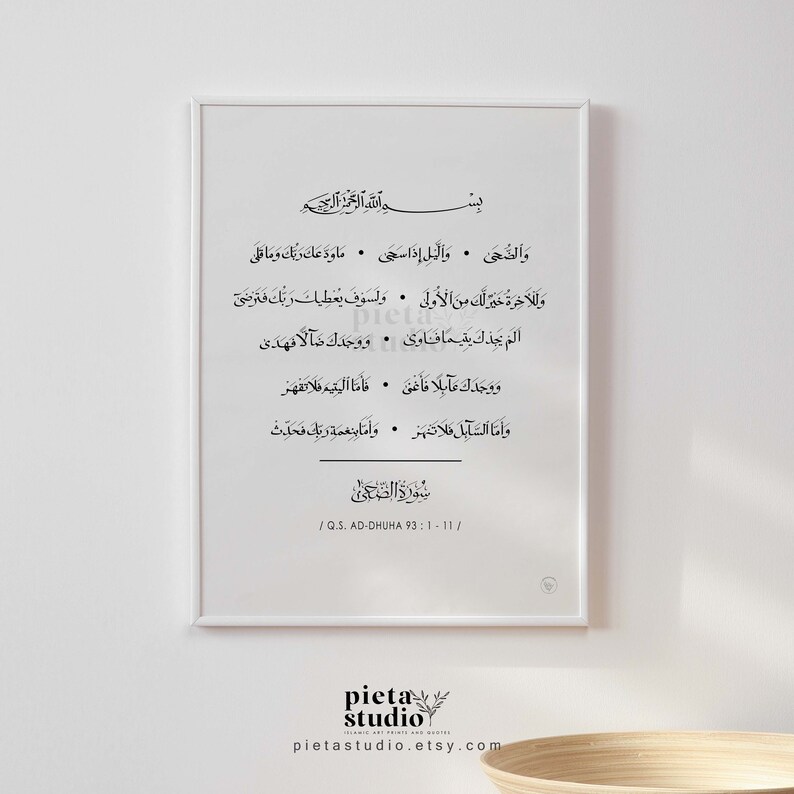 بِسْمِ ٱللَّهِ ٱلرَّحْمَٰنِ ٱلرَّحِيمِ
وَٱلضُّحَىٰ • وَٱلَّيْلِ إِذَا سَجَىٰ • مَا وَدَّعَكَ رَبُّكَ وَمَا قَلَىٰ
وَلَلْآخِرَةُ خَيْرٌ لَّكَ مِنَ ٱلْأُولَىٰ • وَلَسَوْفَ يُعْطِيكَ رَبُّكَ فَتَرْضَىٰٓ
pieta
studio
أَلَمْ يَجِدْكَ يَتِيمًا فَـَٔاوَىٰ • وَوَجَدَكَ ضَآلًّا فَهَدَىٰ
وَوَجَدَكَ عَآئِلًا فَأَغْنَىٰ • فَأَمَّا ٱلْيَتِيمَ فَلَا تَقْهَرْ
وَأَمَّا ٱلسَّآئِلَ فَلَا تَنْهَرْ • وَأَمَّا بِنِعْمَةِ رَبِّكَ فَحَدِّثْ
سُورَةُ ٱلضُّحَىٰ
/ Q.S. AD-DHUHA 93 : 1 - 11 /
pieta
studio
ISLAMIC ART PRINTS AND QUOTES
pietastudio.etsy.com